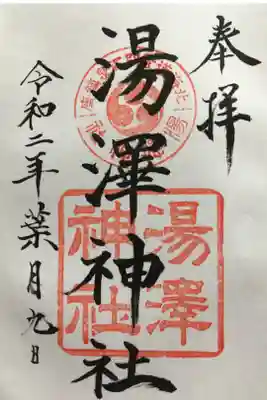 奉拝
湯澤神社
令和二年葉月九日
湯澤
神社